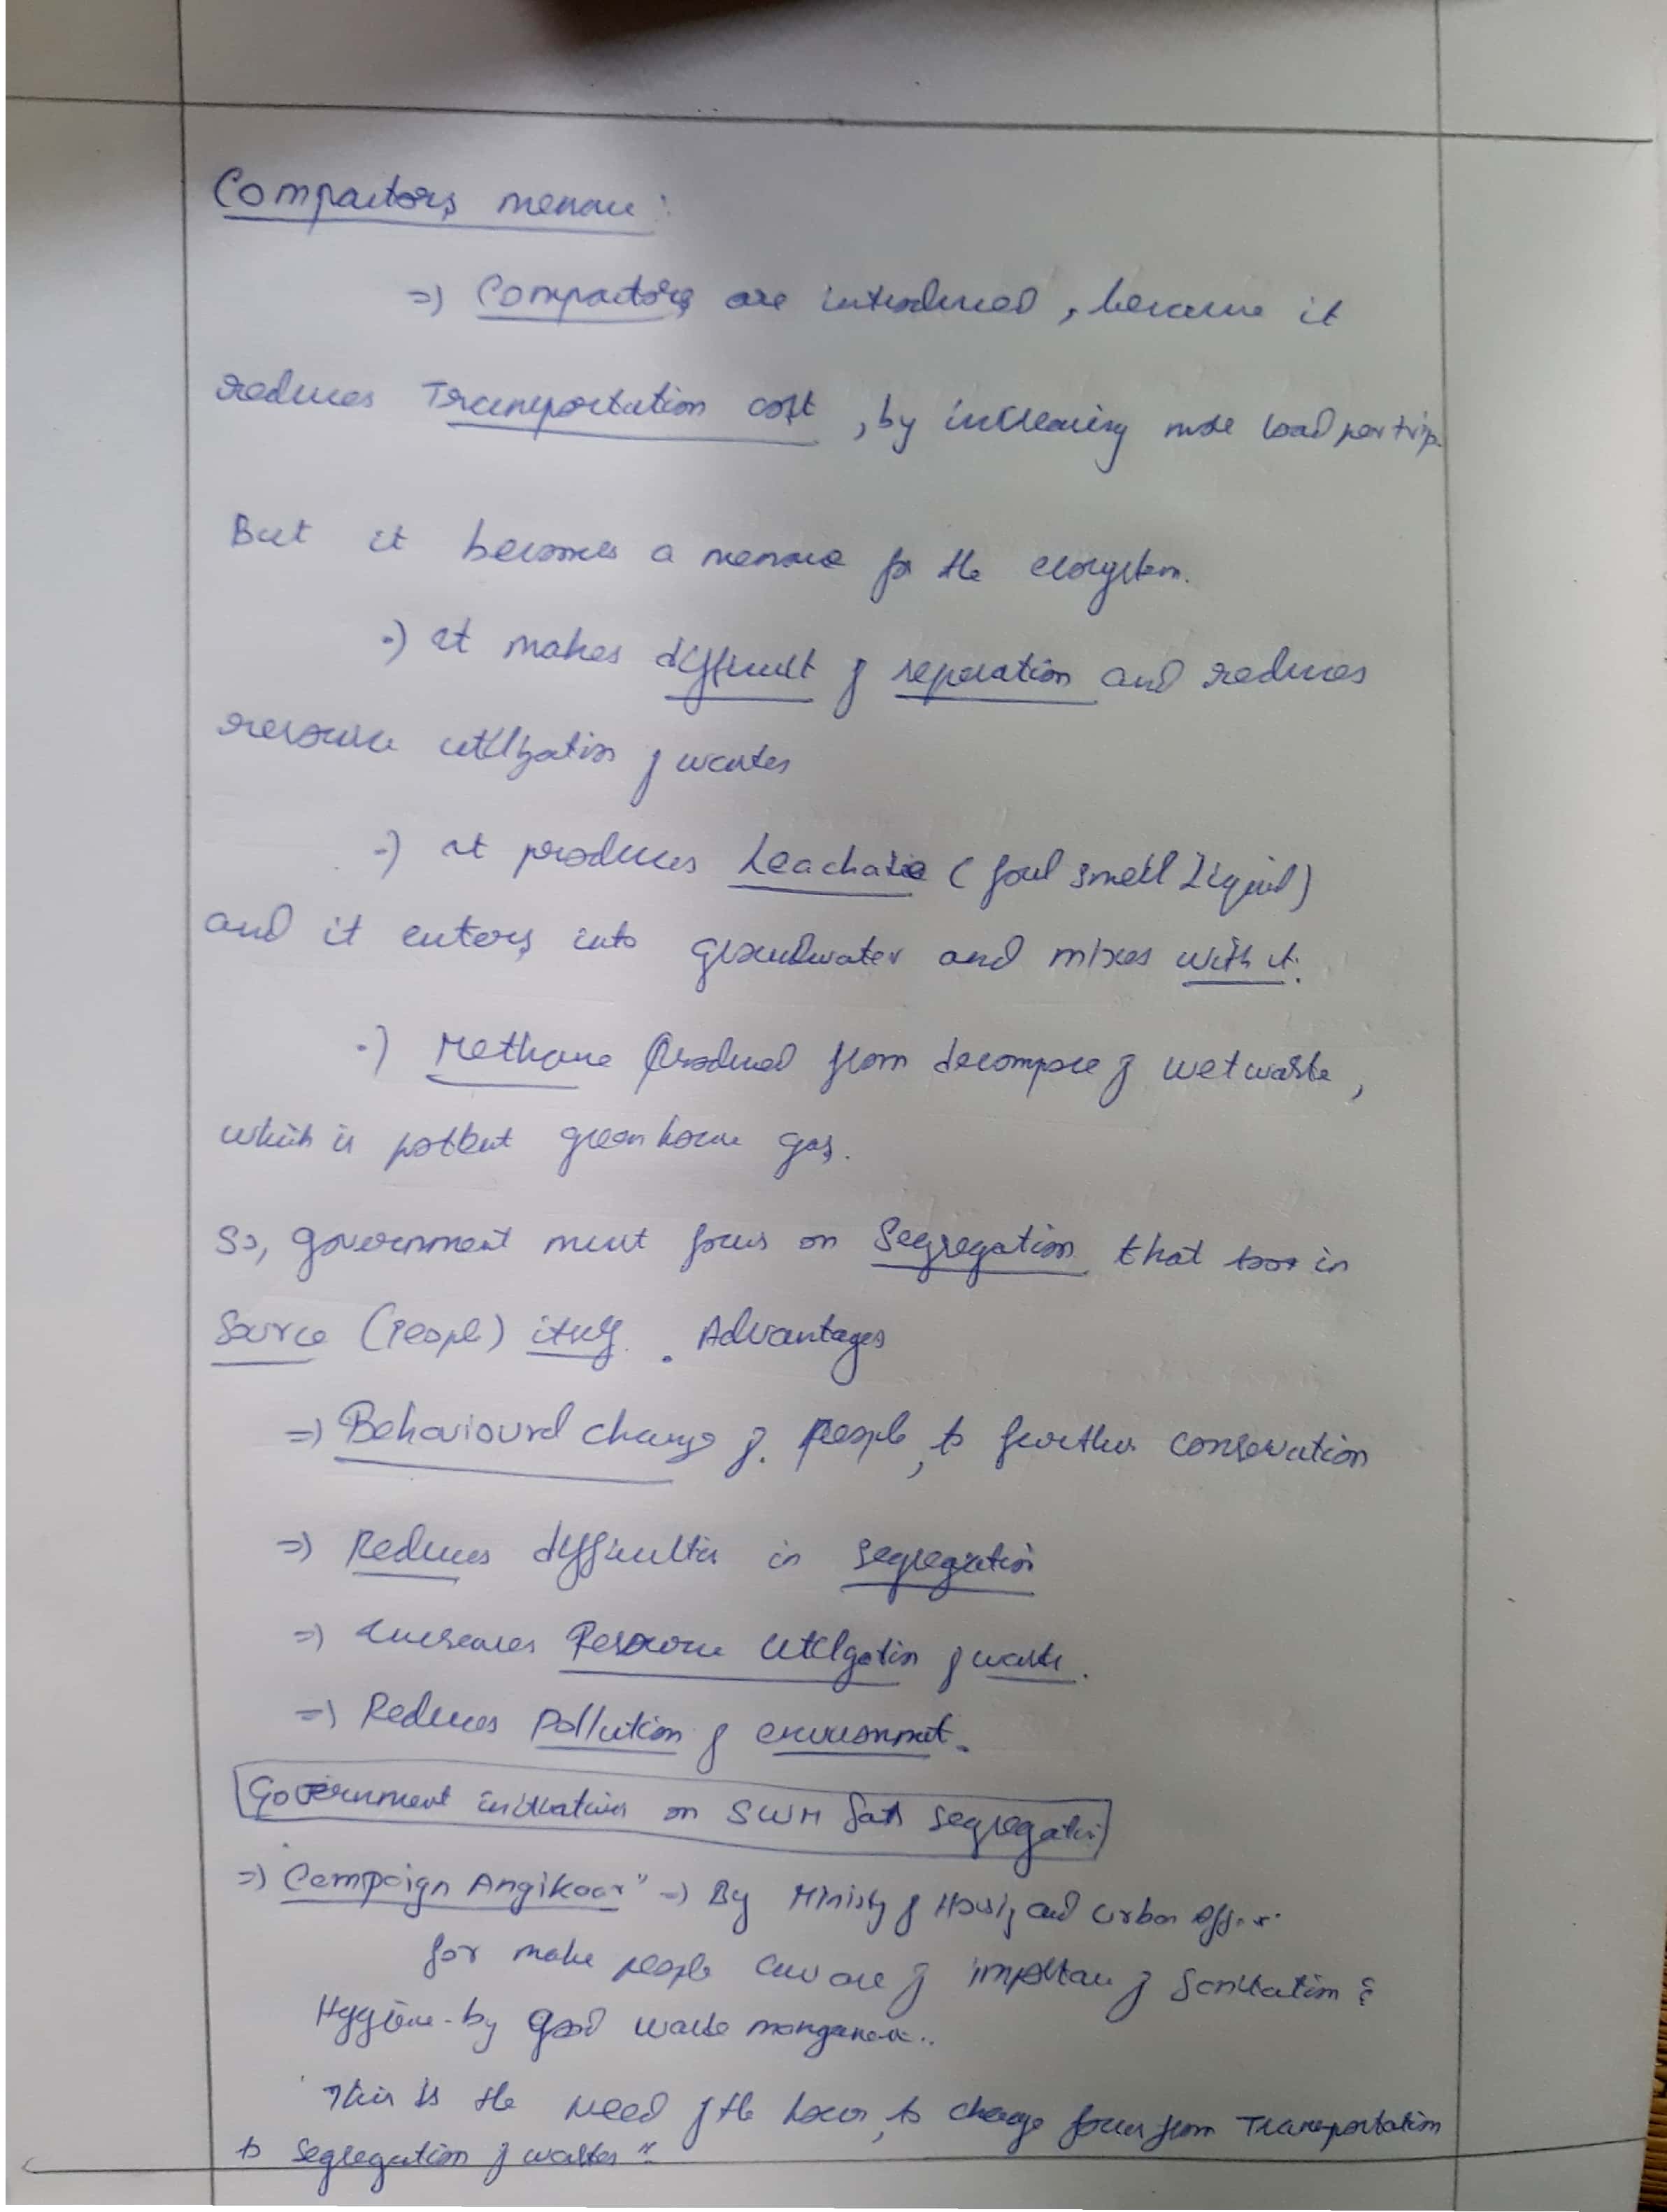 Compactors menace :
=) Compactors are introduced , because it
reduces Transportation cost , by increasing more load per trip.
But it becomes a menace for the ecosystem.
·) It makes difficult of seperation and reduces
resource utilization of wastes
·) It produces Leachate ( foul smell Liquid )
and it enters into groundwater and mixes with it.
·) Methane Produced from decompose of wet waste ,
which is potent green house gas.
So, government must focus on Segregation that too in
Source (People) itself . Advantages
=) Behavioural change of people, to further conservation
=) Reduces difficulties in segregation
=) Increases Resource utilization of waste.
=) Reduces Pollution of environment.
Government initiatives on SWM segregation
=) Campaign Angikaar" =) By Ministry of Housing and Urban Affair
for make people aware of importance of Sanitation &
Hygiene by good waste
This is the need of the hour, to change focus from Transportation
to Segregation of wastes "